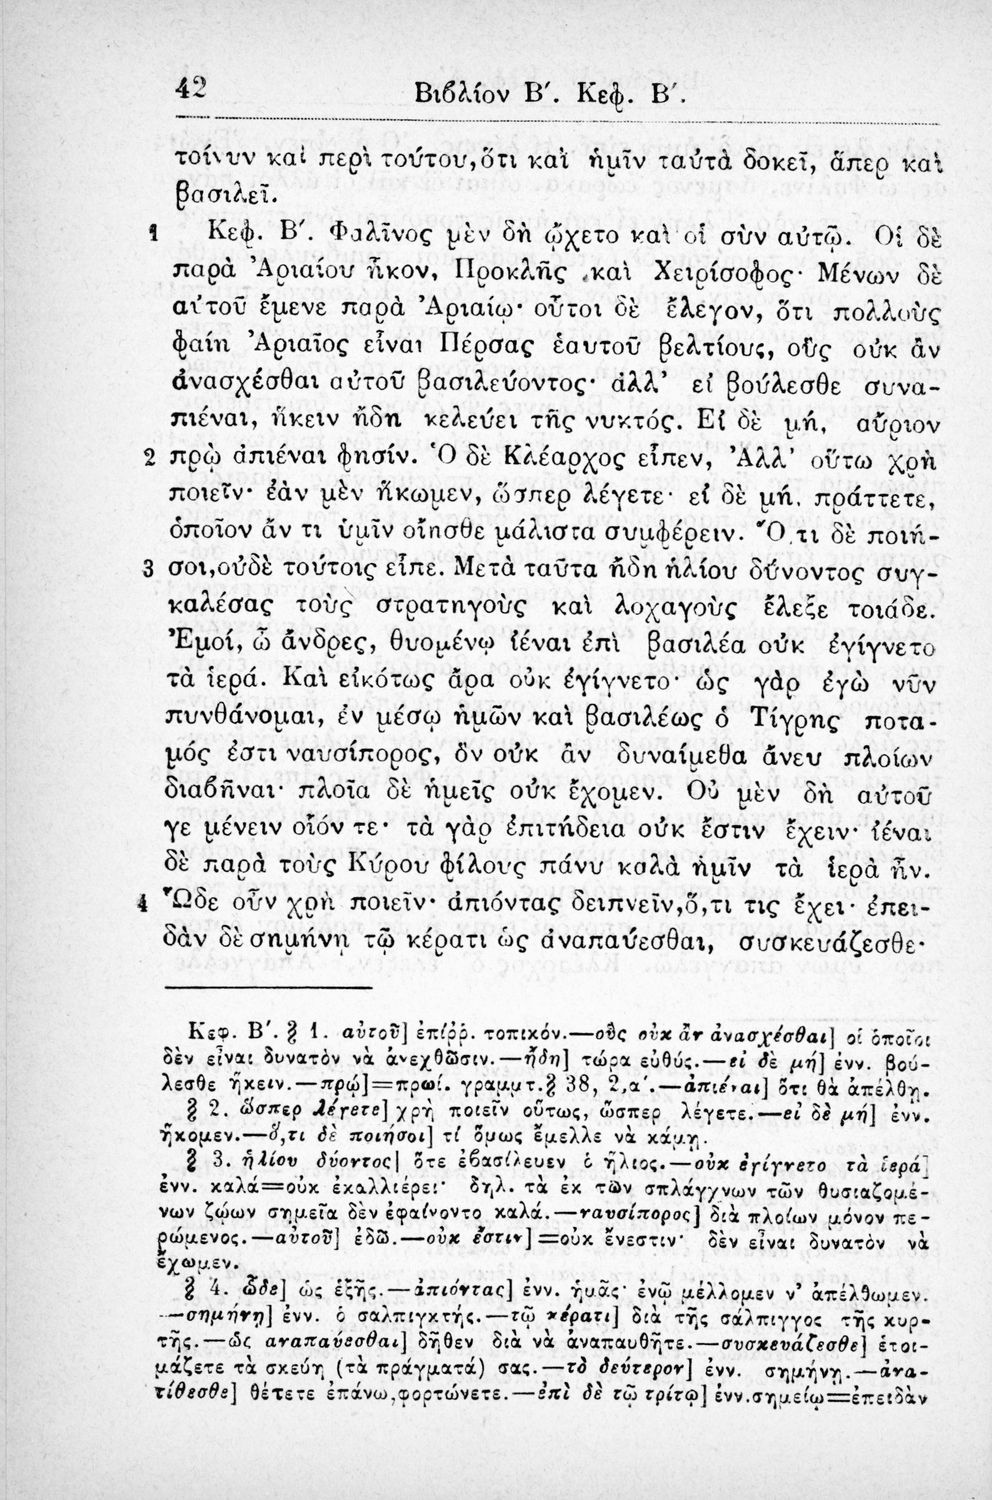 42
Βιβλίον Β'. Κεφ. Β'.
τοίνυν καὶ περὶ τούτου, ὅτι καὶ ἡμῖν ταὐτὰ δοκεῖ, ἅπερ καὶ
βασιλεῖ.
1 Κεφ. Β'. Φαλῖνος μὲν δὴ ᾤχετο καὶ οἱ σὺν αὐτῷ. Οἱ δὲ
παρὰ Ἀριαίου ἧκον, Προκλῆς καὶ Χειρίσοφος· Μένων δὲ
αὐτοῦ ἔμενε παρὰ Ἀριαίῳ· οὗτοι δὲ ἔλεγον, ὅτι πολλοὺς
φαίη Ἀριαῖος εἶναι Πέρσας ἑαυτοῦ βελτίους, οὓς οὐκ ἂν
ἀνασχέσθαι αὐτοῦ βασιλεύοντος· ἀλλ' εἰ βούλεσθε συνα-
πιέναι, ἥκειν ἤδη κελεύει τῆς νυκτός. Εἰ δὲ μή, αὔριον
2 πρῲ ἀπιέναι φησίν. Ὁ δὲ Κλέαρχος εἶπεν, Ἀλλ' οὕτω χρὴ
ποιεῖν· ἐὰν μὲν ἥκωμεν, ὥσπερ λέγετε· εἰ δὲ μή, πράττετε,
ὁποῖον ἄν τι ὑμῖν οἴησθε μάλιστα συμφέρειν. Ὅ,τι δὲ ποιή-
3 σοι, οὐδὲ τούτοις εἶπε. Μετὰ ταῦτα ἤδη ἡλίου δύνοντος συγ-
καλέσας τοὺς στρατηγοὺς καὶ λοχαγοὺς ἔλεξε τοιάδε.
Ἐμοί, ὦ ἄνδρες, θυομένῳ ἰέναι ἐπὶ βασιλέα οὐκ ἐγίγνετο
τὰ ἱερά. Καὶ εἰκότως ἄρα οὐκ ἐγίγνετο· ὡς γὰρ ἐγὼ νῦν
πυνθάνομαι, ἐν μέσῳ ἡμῶν καὶ βασιλέως ὁ Τίγρης ποτα-
μός ἐστι ναυσίπορος, ὃν οὐκ ἂν δυναίμεθα ἄνευ πλοίων
διαβῆναι· πλοῖα δὲ ἡμεῖς οὐκ ἔχομεν. Οὐ μὲν δὴ αὐτοῦ
γε μένειν οἷόν τε· τὰ γὰρ ἐπιτήδεια οὐκ ἔστιν ἔχειν· ἰέναι
δὲ παρὰ τοὺς Κύρου φίλους πάνυ καλὰ ἡμῖν τὰ ἱερὰ ἦν.
4 Ὧδε οὖν χρὴ ποιεῖν· ἀπιόντας δειπνεῖν, ὅ,τι τις ἔχει· ἐπει-
δὰν δὲ σημήνῃ τῷ κέρατι ὡς ἀναπαύεσθαι, συσκευάζεσθε·
Κεφ. Β'. § 1. αὐτοῦ] ἐπίῤῥ. τοπικόν.—οὓς οὐκ ἂν ἀνασχέσθαι] οἱ ὁποῖοι
δὲν εἶναι δυνατὸν νὰ ἀνεχθῶσιν.—ἤδη] τώρα εὐθύς.—εἰ δὲ μή] ἐνν. βού-
λεσθε ἥκειν.—πρῴ]=πρωί. γραμμτ. § 38, 2,α'.—ἀπιέναι] ὅτι θὰ ἀπέλθῃ.
§ 2. ὥσπερ λέγετε] χρὴ ποιεῖν οὕτως, ὥσπερ λέγετε.—εἰ δὲ μή] ἐνν.
ἥκομεν.—ὅ,τι δὲ ποιήσοι] τί ὅμως ἔμελλε νὰ κάμῃ.
§ 3. ἡλίου δύοντος] ὅτε ἐβασίλευεν ὁ ἥλιος.—οὐκ ἐγίγνετο τὰ ἱερά]
ἐνν. καλά=οὐκ ἐκαλλιέρει· δηλ. τὰ ἐκ τῶν σπλάγχνων τῶν θυσιαζομέ-
νων ζῴων σημεῖα δὲν ἐφαίνοντο καλά.—ναυσίπορος] διὰ πλοίων μόνον πε-
ρώμενος.—αὐτοῦ] ἐδῶ.—οὐκ ἔστιν]=οὐκ ἔνεστιν· δὲν εἶναι δυνατὸν νὰ
ἔχωμεν.
§ 4. ὧδε] ὡς ἑξῆς.—ἀπιόντας] ἐνν. ἡμᾶς· ἐνῷ μέλλομεν ν' ἀπέλθωμεν.
—σημήνῃ] ἐνν. ὁ σαλπιγκτής.—τῷ κέρατι] διὰ τῆς σάλπιγγος τῆς κυρ-
τῆς.—ὡς ἀναπαύεσθαι] δῆθεν διὰ νὰ ἀναπαυθῆτε.—συσκευάζεσθε] ἑτοι-
μάζετε τὰ σκεύη (τὰ πράγματά) σας.—τὸ δεύτερον] ἐνν. σημήνῃ.—ἀνα-
τίθεσθε] θέτετε ἐπάνω, φορτώνετε.—ἐπὶ δὲ τῷ τρίτῳ] ἐνν. σημείῳ=ἐπειδὰν